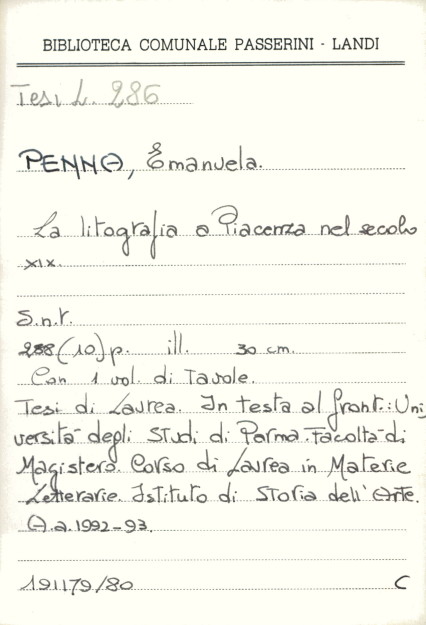 BIBLIOTECA COMUNALE PASSERINI - LANDI
Tesi L. 286
PENNA, Emanuela.
La litografia a Piacenza nel secolo
XIX.
S.n.t.
288 (10) p. ill. 30 cm.
Con 1 vol. di Tavole.
Tesi di Laurea. In testa al front.: Uni
versità degli Studi di Parma. Facoltà di
Magistero. Corso di Laurea in Materie
Letterarie. Istituto di Storia dell'Arte.
A.a. 1992-93.
191179/80 C